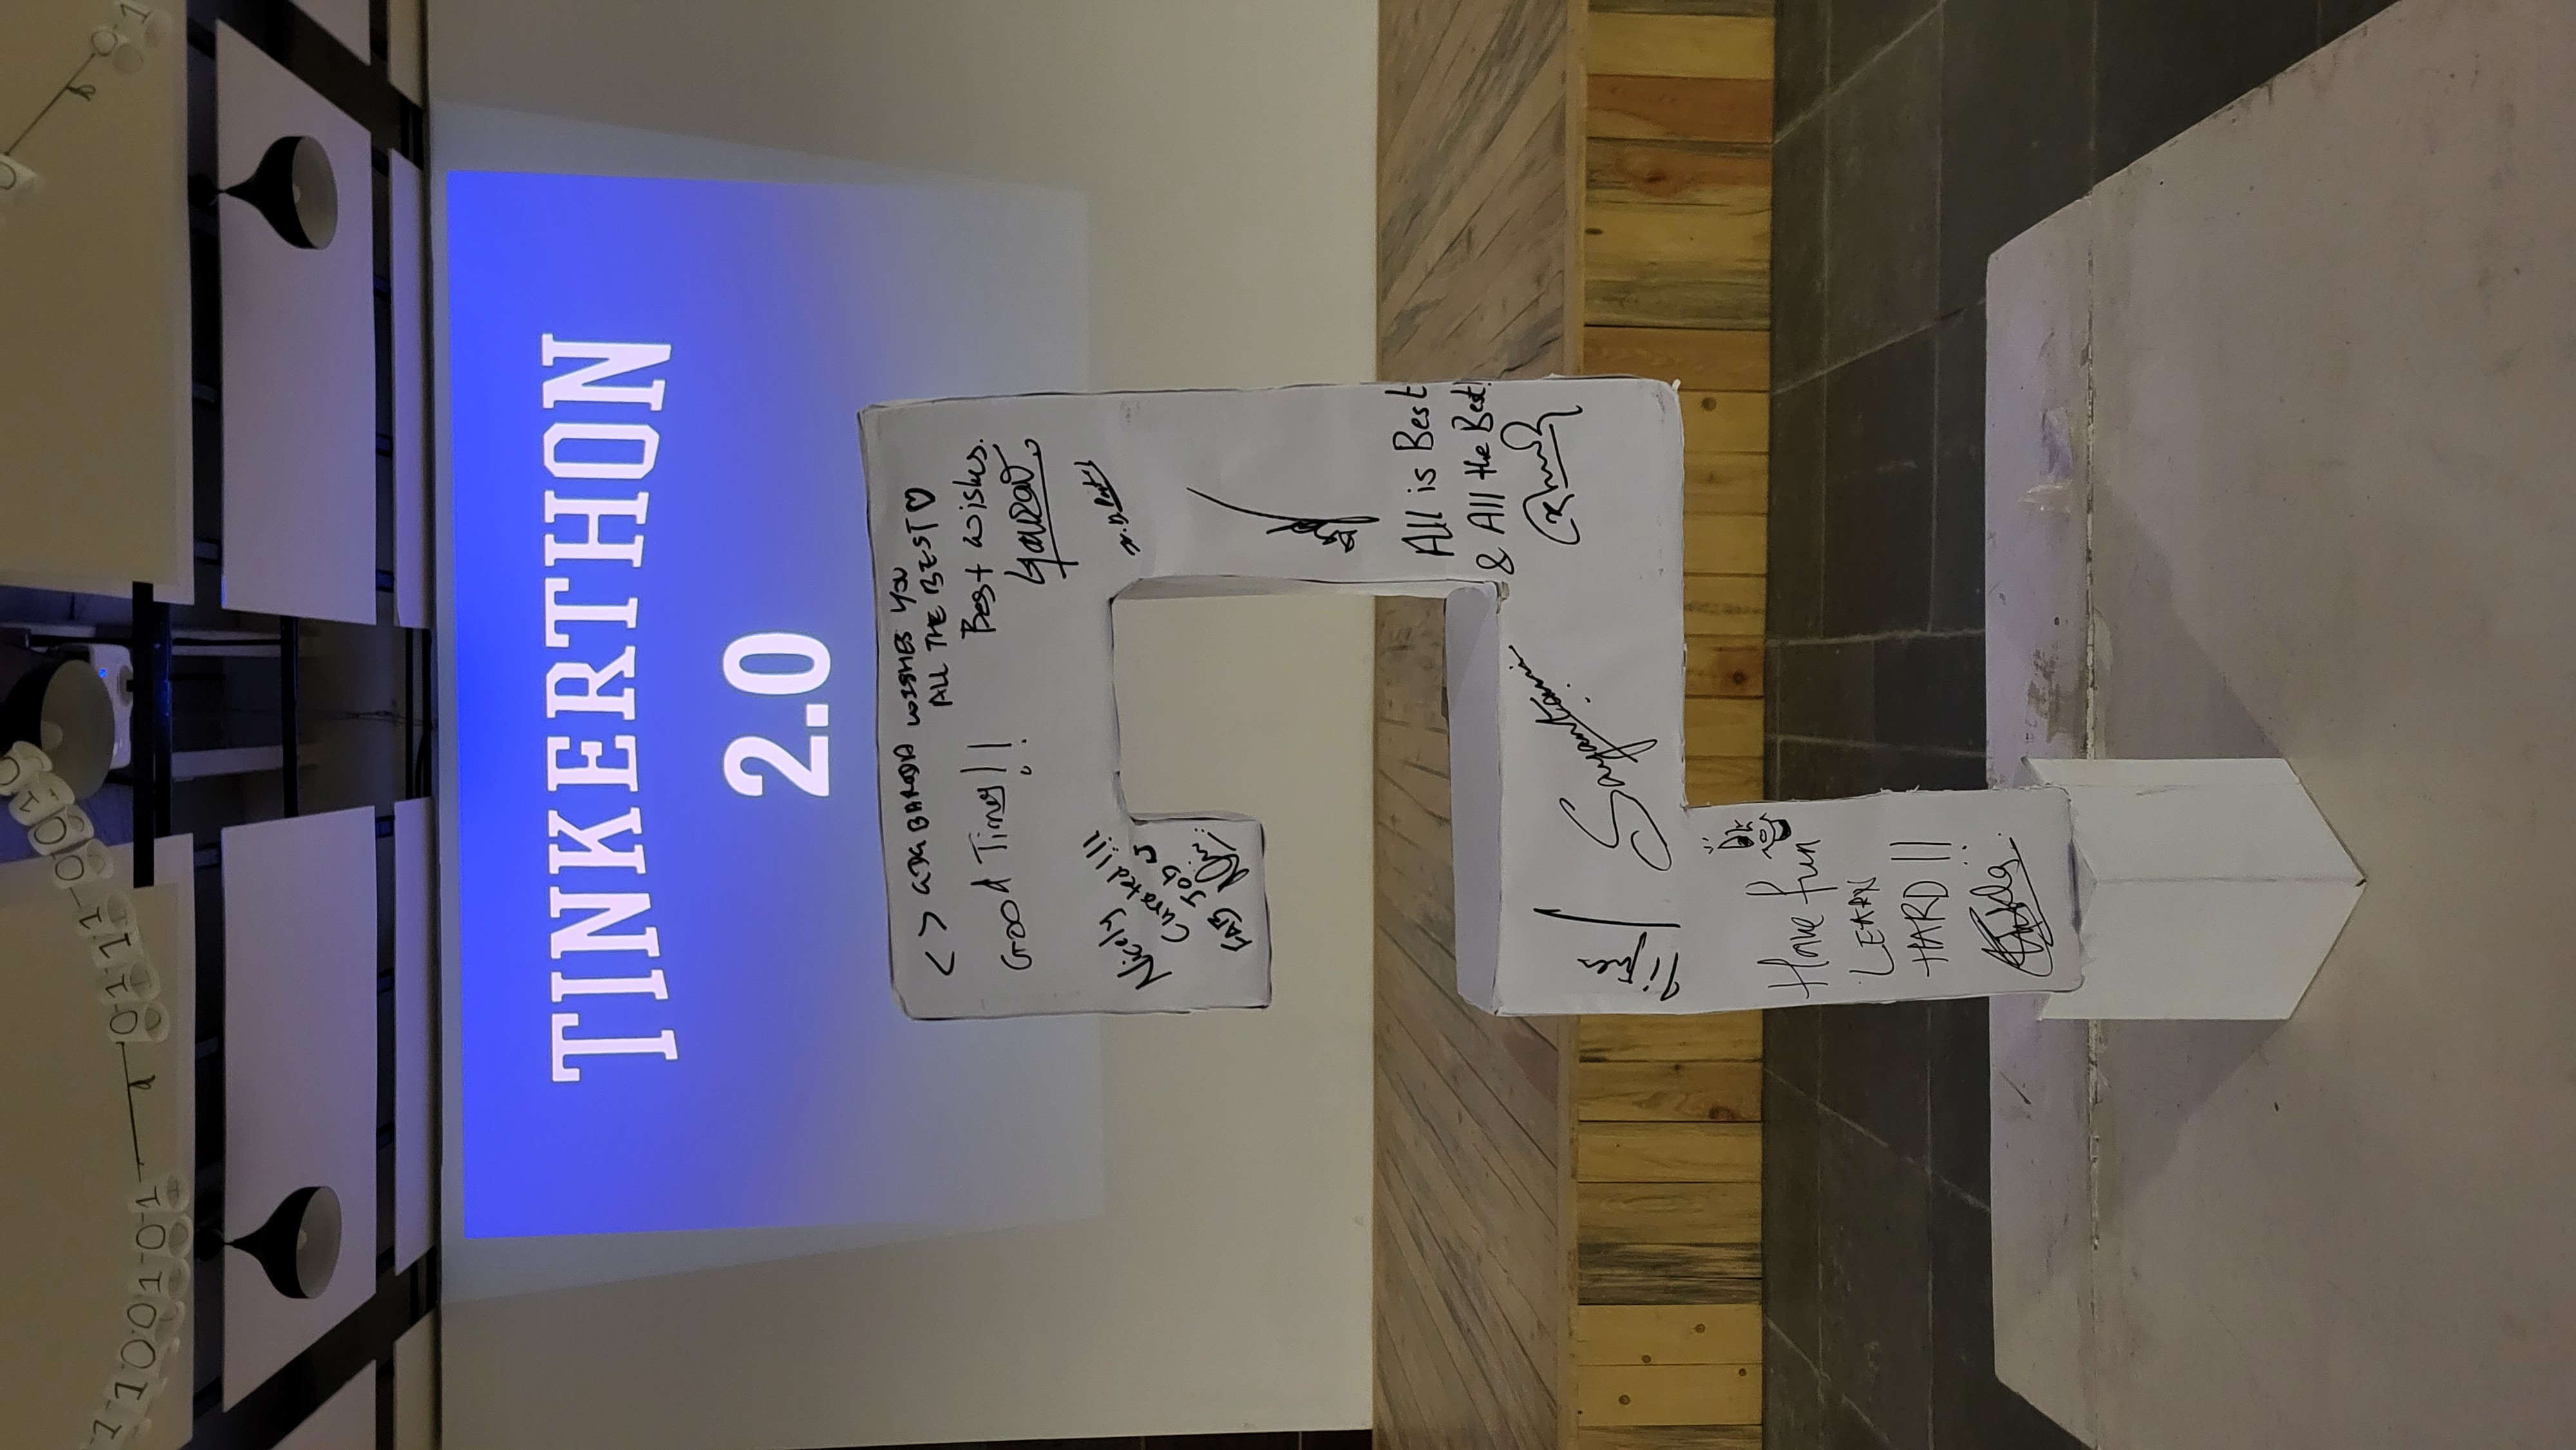 1100101
01110010
0
1
TINKERTHON
2.0
< > GDG BARODA WISHES YOU
ALL THE BEST ♡
Good Times!!
Best wishes.
Gaurav
Nicely
Curated!!!
FAB JOB
All is Best
& All the Best!
Sayantani
Have fun
LEARN
HARD!!